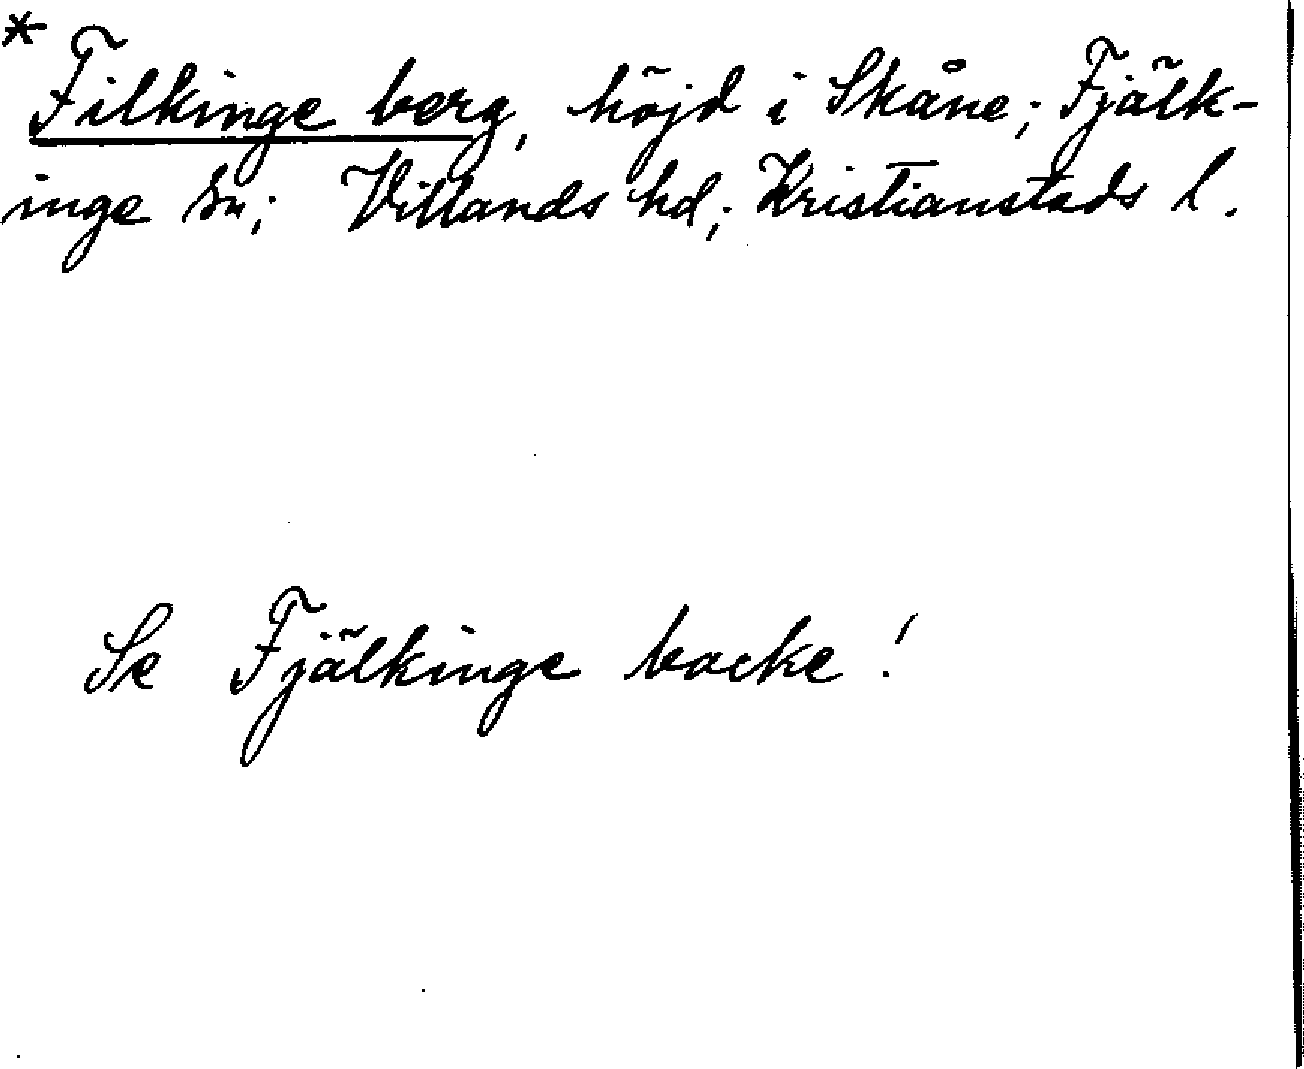 * Filkinge berg, höjd i Skåne; Fjälk-
inge sn; Villands hd; Kristianstads l.
Se Fjälkinge backe!